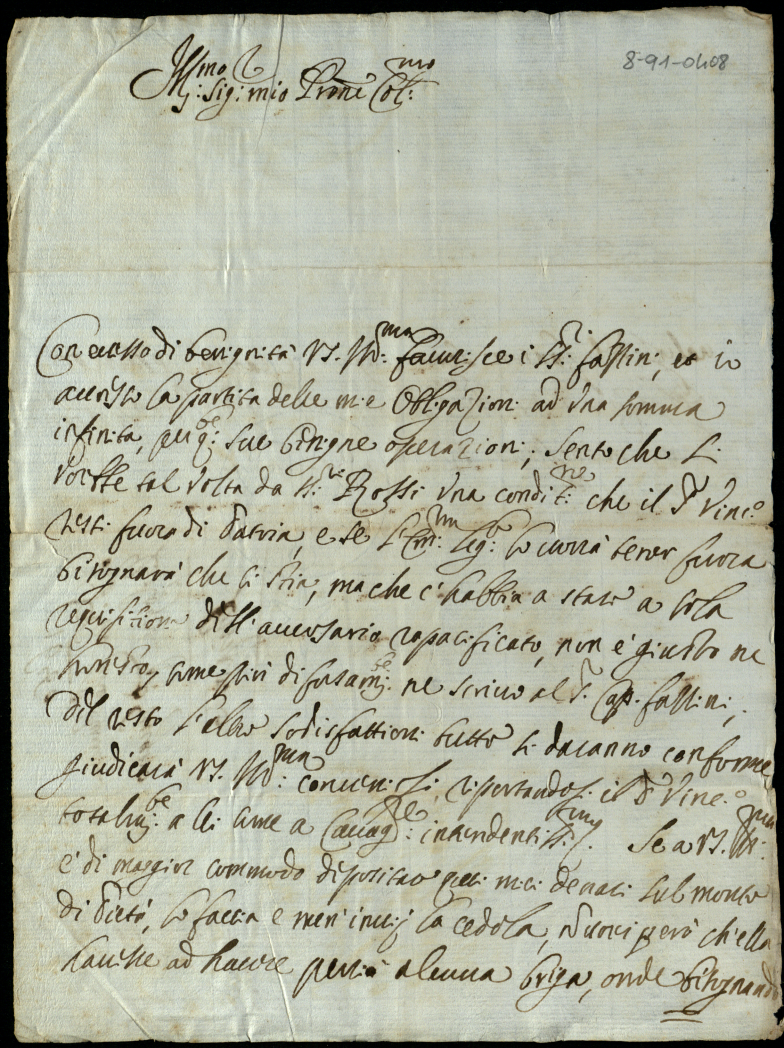 8-91-0408
Ill.mo Sig: mio Prone Col:mo
Con eccesso di benignità VS. Ill:ma favorisce i SS:ri fassini, et io
accresco la partita delle mie Obligazioni ad una somma
infinita, per q: sue benigne operazioni; sento che
vorebbe tal volta da SS:ri Rossi una condit:ne che il S.r Vinc.o
resti fuora di Patria, e se l'Em:mo Leg: lo vorrà tener fuora
bisognarà che ci stia, ma che c'habbia a stare a sola
requisitione dell'aversario rapacificato, non è giusto ne
honesto, come più difusam: ne scrivo al S.r Cap. fassini;
Del resto l'altre sodisfattioni tutte si daranno conforme
giudicarà VS. Ill:ma convenirsi, riportandosi il S.r Vinc.o
totalm: a lei come a Cavag: intendentiss:mo. Se a VS. Ill:ma
è di maggior commodo depositare quei miei denari sul monte
di Pietà, lo faccia e men'invij la cedola, non vorei però ch'ella
havesse ad havere perciò alcuna briga, onde bisognando